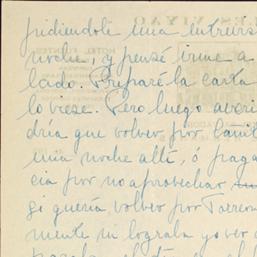 pidiendole una entrevis
noche, y pensé irme a
lado. Preparé la carta
lo viese. Pero luego averi
dría que volver por Cami
una noche allí, ó paga
cia por no aprovechar
si quería volver por Torreon
mente ni lograba yo ver a